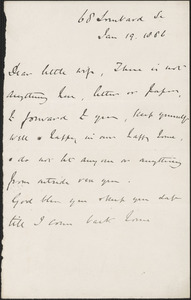 68 Lombard St
Jan 19. 1886
Dear little wife, There is not
anything here, letter or paper,
to forward to you, Keep yourself
well & happy in our happy home.
& do not let anyone or anything
from outside vex you.
God bless you & keep you safe
till I come back home